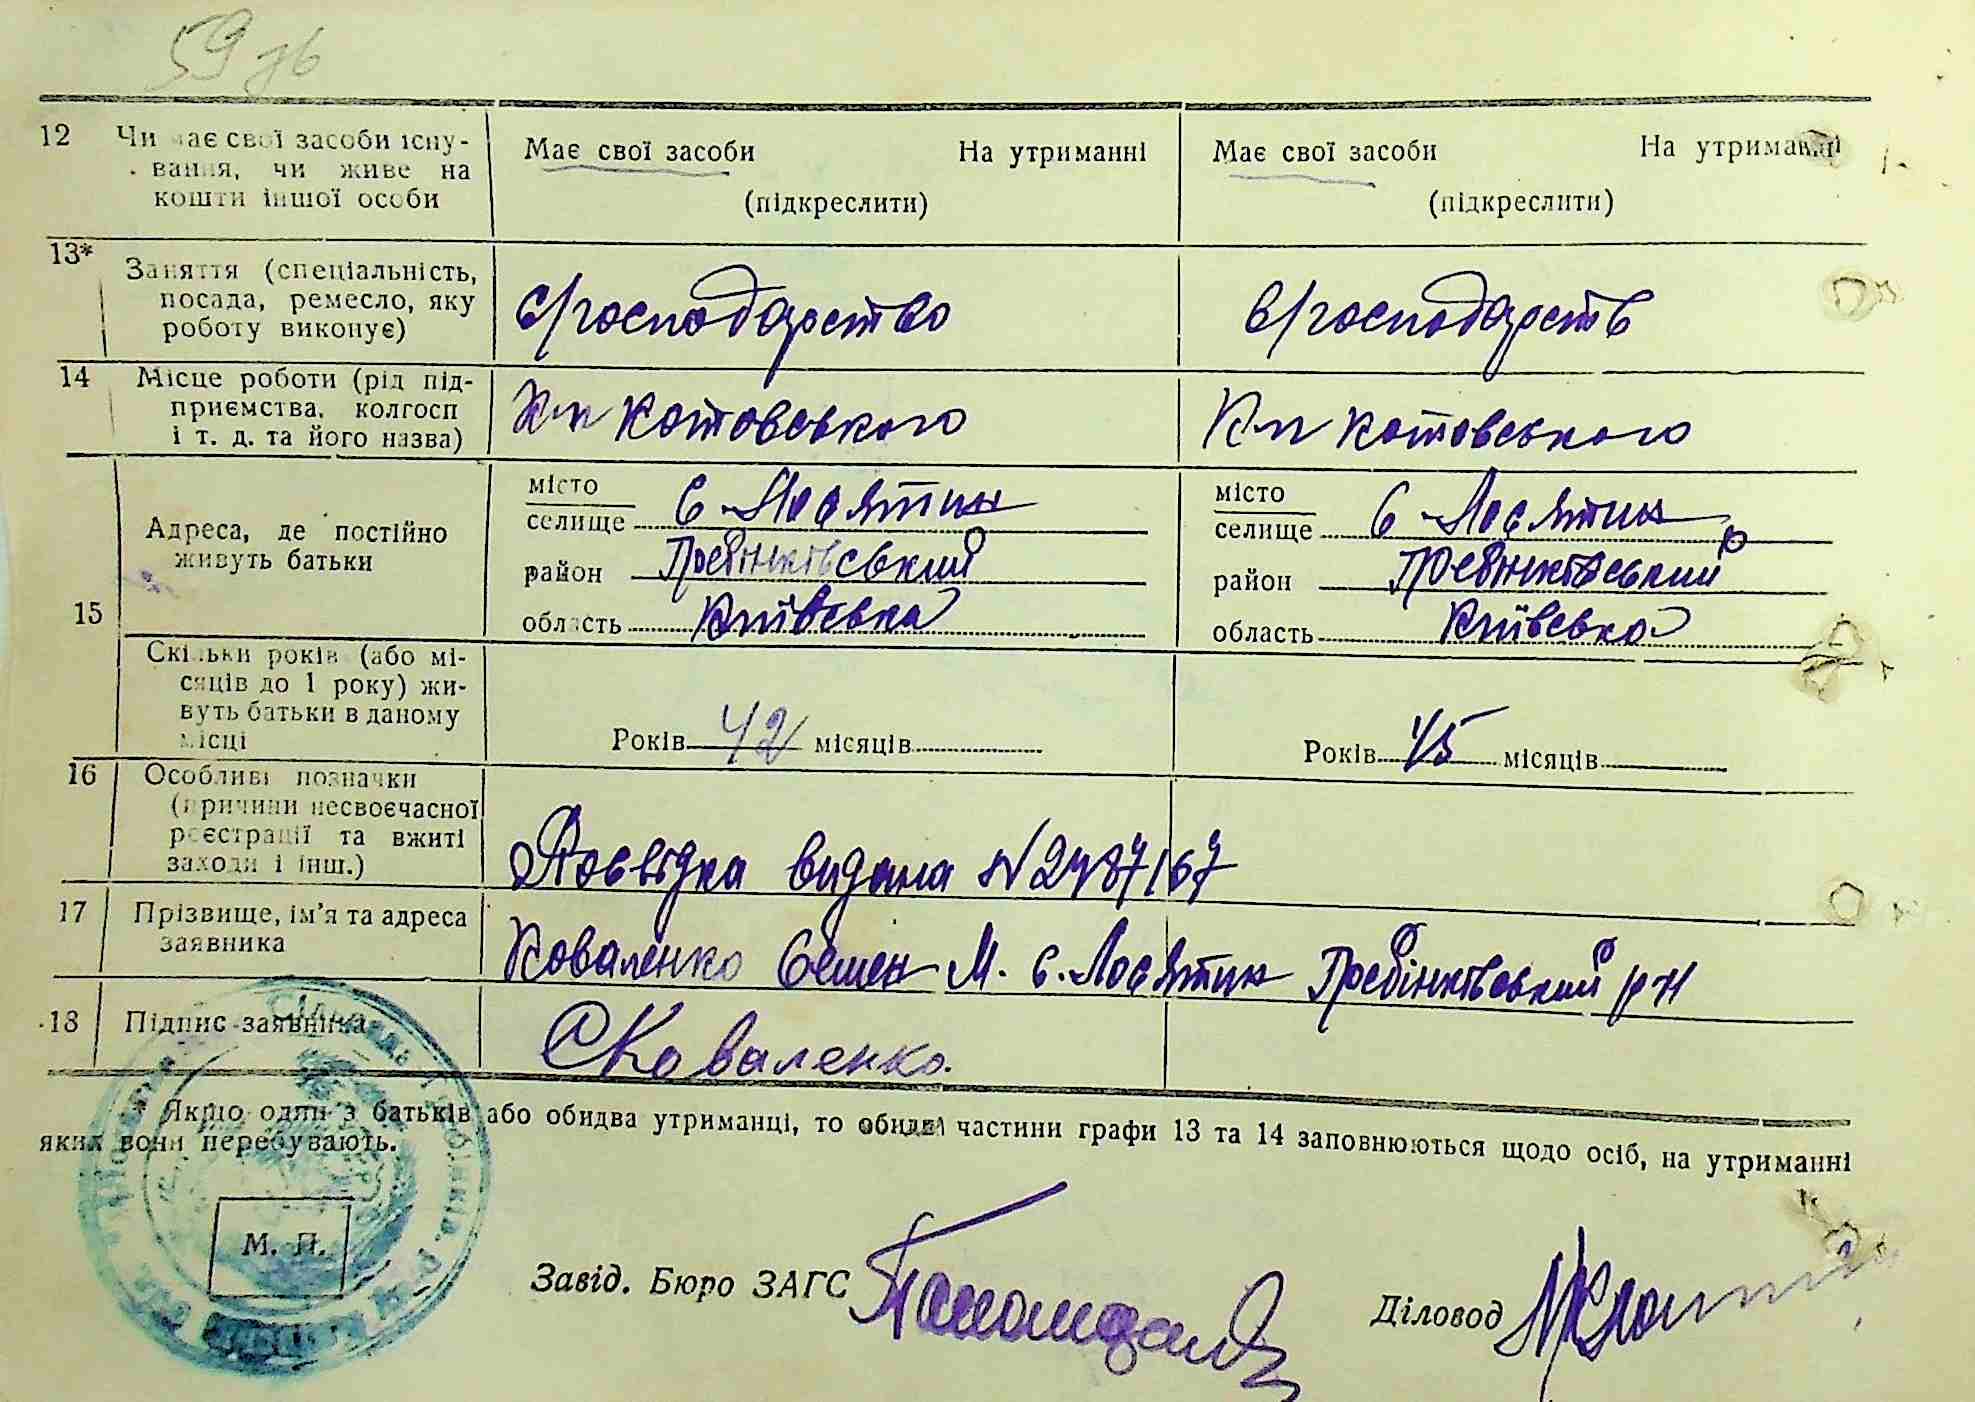 59 зв
12 Чи має свої засоби існу-
вання, чи живе на
кошти іншої особи
Має свої засоби На утриманні
(підкреслити)
Має свої засоби На утриманні
(підкреслити)
13* Заняття (спеціальність,
посада, ремесло, яку
роботу виконує)
с/господарство
с/господарств
14 Місце роботи (рід під-
приємства, колгосп
і т. д. та його назва)
К-п Котовського
К-п Котовського
15 Адреса, де постійно
живуть батьки
місто
селище с. Лосятин
район Гребінківський
область Київська
місто
селище с. Лосятин р
район Гребінківський
область Київська
Скільки років (або мі-
сяців до 1 року) жи-
вуть батьки в даному
місці
Років 42 місяців
Років 45 місяців
16 Особливі позначки
(причини несвоєчасної
реєстрації та вжиті
заходи і інш.)
Довідка видана N
17 Прізвище, ім'я та адреса
заявника
Коваленко Семен М. с. Лосятин Гребінківський р-н
18 Підпис заявника
СКоваленко.
* Якщо один з батьків або обидва утриманці, то обидві частини графи 13 та 14 заповнюються щодо осіб, на утриманні
яких вони перебувають.
М. П.
Завід. Бюро ЗАГС
Діловод